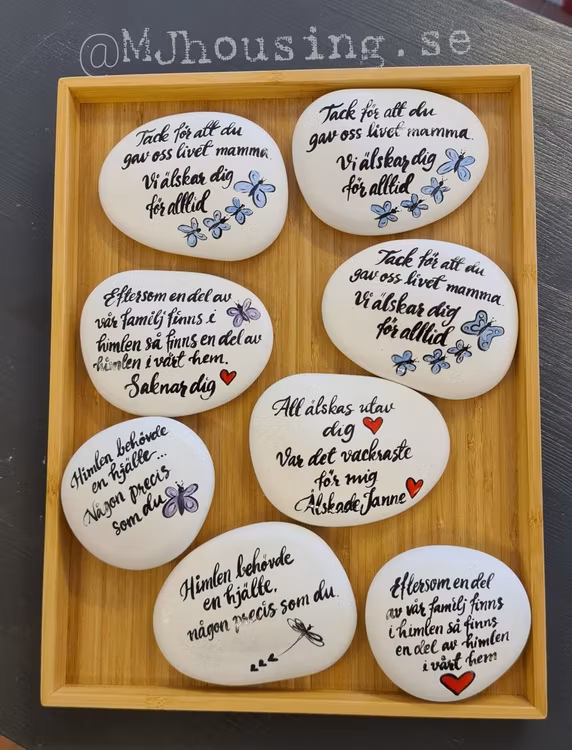 @MJhousing.se
Tack för att du
gav oss livet mamma.
Vi älskar dig
för alltid
Tack för att du
gav oss livet mamma.
Vi älskar dig
för alltid
Eftersom en del av
vår familj finns i
himlen så finns en del av
himlen i vårt hem.
Saknar dig
Tack för att du
gav oss livet mamma.
Vi älskar dig
för alltid
Himlen behövde
en hjälte...
Någon precis
som du
Att älskas utav
dig
Var det vackraste
för mig
Älskade Janne
Himlen behövde
en hjälte,
någon precis som du.
Eftersom en del
av vår familj finns
i himlen så finns
en del av himlen
i vårt hem